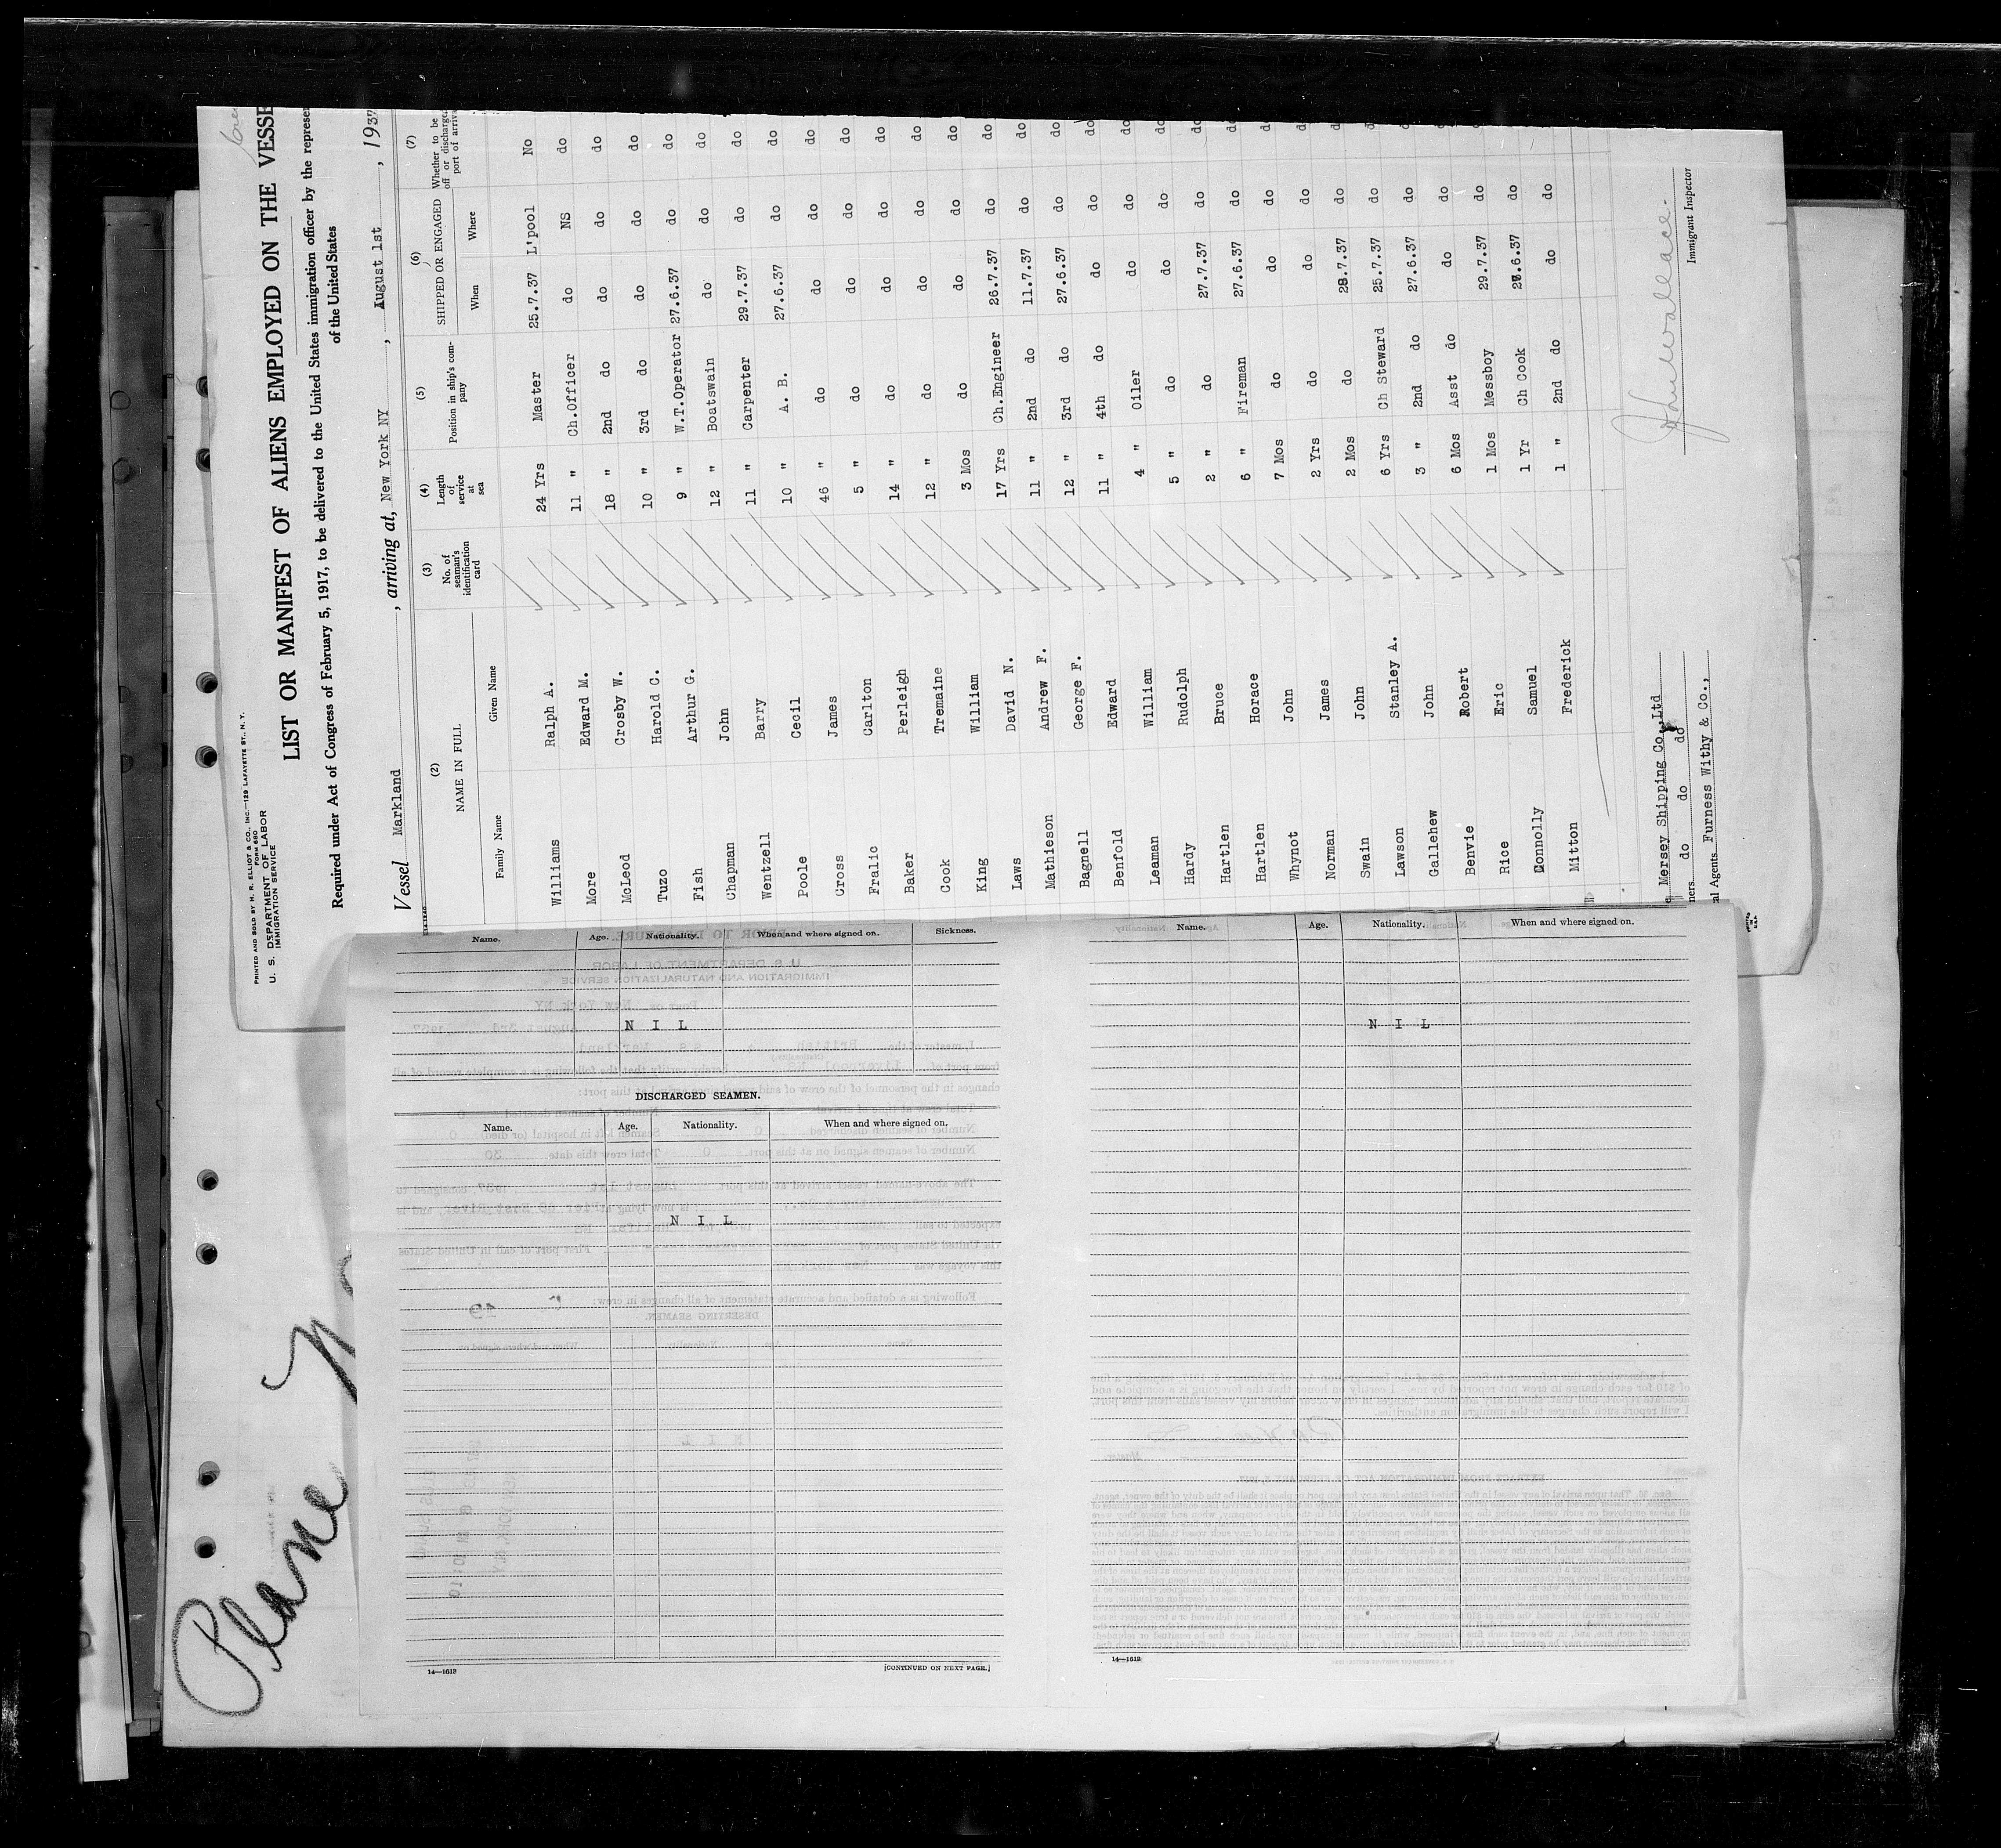 PRINTED AND SOLD BY H. R. ELLIOT & CO., INC.—129 LAFAYETTE ST., N. Y.
FORM 680
U. S. DEPARTMENT OF LABOR
IMMIGRATION SERVICE
LIST OR MANIFEST OF ALIENS EMPLOYED ON THE VESSE
Required under Act of Congress of February 5, 1917, to be delivered to the United States immigration officer by the represen
of the United States
Vessel Markland, arriving at, New York NY, August 1st, 1937
(2) (3) (4) (5) (6) (7)
NAME IN FULL No. of seaman's identification card Length of service at sea Position in ship's company SHIPPED OR ENGAGED Whether to be off or discharge port of arriva
Family Name Given Name When Where
Williams Ralph A. 24 Yrs Master 25.7.37 L'pool No
More Edward M. 11 " Ch.Officer do NS do
McLeod Crosby W. 18 " 2nd do do do do
Tuzo Harold C. 10 " 3rd do do do do
Fish Arthur G. 9 " W.T.Operator 27.6.37 do do
Chapman John 12 " Boatswain do do do
Wentzell Barry 11 " Carpenter 29.7.37 do do
Poole Cecil 10 " A. B. 27.6.37 do do
Cross James 46 " do do do do
Fralic Carlton 5 " do do do do
Baker Perleigh 14 " do do do do
Cook Tremaine 12 " do do do do
King William 3 Mos do do do do
Laws David N. 17 Yrs Ch.Engineer 26.7.37 do do
Mathieson Andrew F. 11 " 2nd do 11.7.37 do do
Bagnell George F. 12 " 3rd do 27.6.37 do do
Benfold Edward 11 " 4th do do do do
Leaman William 4 " Oiler do do do
Hardy Rudolph 5 " do do do do
Hartlen Bruce 2 " do 27.7.37 do do
Hartlen Horace 6 " Fireman 27.6.37 do do
Whynot John 7 Mos do do do do
Norman James 2 Yrs do do do do
Swain John 2 Mos do 28.7.37 do do
Lawson Stanley A. 6 Yrs Ch Steward 25.7.37 do do
Gallehew John 3 " 2nd do 27.6.37 do do
Benvie Robert 6 Mos Asst do do do do
Rice Eric 1 Mos Messboy 29.7.37 do do
Donnolly Samuel 1 Yr Ch Cook 28.6.37 do do
Mitton Frederick 1 " 2nd do do do do
Mersey Shipping Co.,Ltd
ners do do do
al Agents Furness Withy & Co.,
Immigrant Inspector
Name. Age. Nationality. When and where signed on. Sickness.
N I L
DISCHARGED SEAMEN.
Name. Age. Nationality. When and where signed on.
N I L
14—1613 [CONTINUED ON NEXT PAGE.]
Name. Age. Nationality. When and where signed on.
N I L
14—1613
Plane